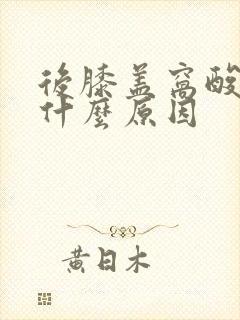 後膝盖窩酸
什麼原因
黄日木